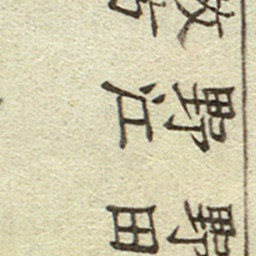 野田
野江